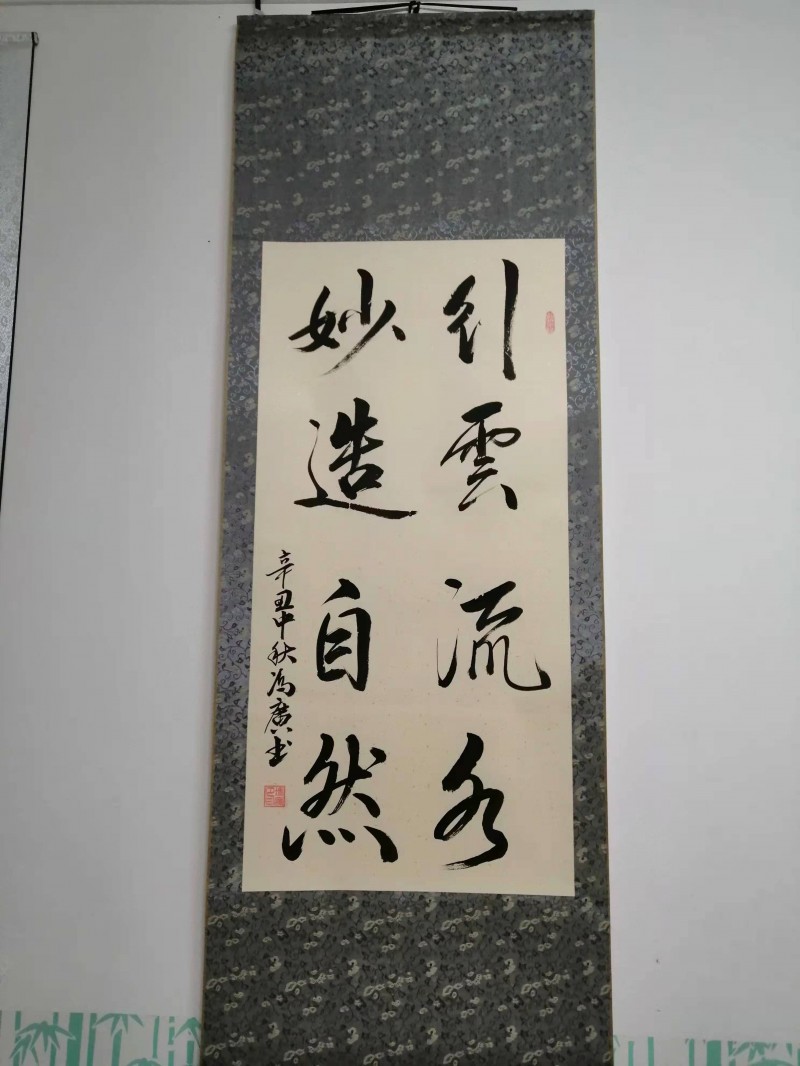 行雲流水
妙造自然
辛丑中秋馮廣书